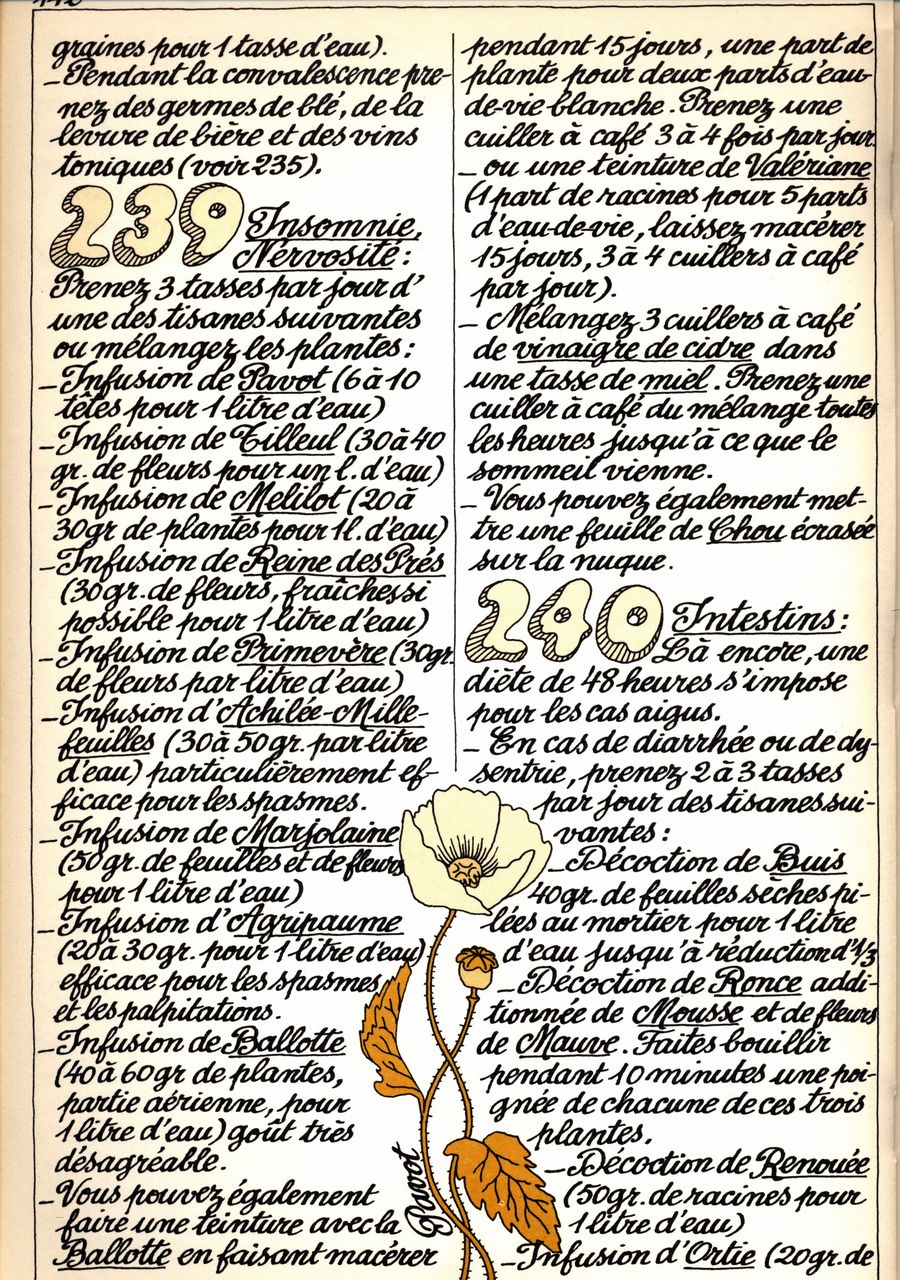 graines pour 1 tasse d'eau).
_Pendant la convalescence pre-
nez des germes de blé, de la
levure de bière et des vins
toniques (voir 235).
239 Insomnie,
Nervosité :
Prenez 3 tasses par jour d'
une des tisanes suivantes
ou mélangez les plantes :
_Infusion de Pavot (6 à 10
têtes pour 1 litre d'eau)
_Infusion de Tilleul (30 à 40
gr. de fleurs pour un l. d'eau)
_Infusion de Mélilot (20 à
30gr de plantes pour 1l. d'eau)
_Infusion de Reine des Prés
(30gr. de fleurs, fraîches si
possible pour 1 litre d'eau)
_Infusion de Primevère (30gr.
de fleurs par litre d'eau)
_Infusion d'Achilée-Mille-
feuilles (30 à 50gr. par litre
d'eau) particulièrement ef-
ficace pour les spasmes.
_Infusion de Marjolaine
(50gr. de feuilles et de fleurs
pour 1 litre d'eau)
_Infusion d'Agripaume
(20 à 30gr. pour 1 litre d'eau)
efficace pour les spasmes
et les palpitations.
_Infusion de Ballotte
(40 à 60gr de plantes,
partie aérienne, pour
1 litre d'eau) goût très
désagréable.
_Vous pouvez également
faire une teinture avec la
Ballotte en faisant macérer
pendant 15 jours, une part de
plante pour deux parts d'eau-
de-vie blanche. Prenez une
cuiller à café 3 à 4 fois par jour.
_ou une teinture de Valériane
(1 part de racines pour 5 parts
d'eau-de-vie, laissez macérer
15 jours, 3 à 4 cuillers à café
par jour).
_Mélangez 3 cuillers à café
de vinaigre de cidre dans
une tasse de miel. Prenez une
cuiller à café du mélange toutes
les heures jusqu'à ce que le
sommeil vienne.
_Vous pouvez également met-
tre une feuille de Chou écrasée
sur la nuque.
240 Intestins :
Là encore, une
diète de 48 heures s'impose
pour les cas aigus.
_En cas de diarrhée ou de dy-
sentrie, prenez 2 à 3 tasses
par jour des tisanes sui-
vantes :
_Décoction de Buis
40gr. de feuilles sèches pi-
lées au mortier pour 1 litre
d'eau jusqu'à réduction d'1/3
_Décoction de Ronce addi-
tionnée de Mousse et de fleurs
de Mauve. Faites bouillir
pendant 10 minutes une poi-
gnée de chacune de ces trois
plantes.
_Décoction de Renouée
(50gr. de racines pour
1 litre d'eau)
_Infusion d'Ortie (20gr. de
Pavot